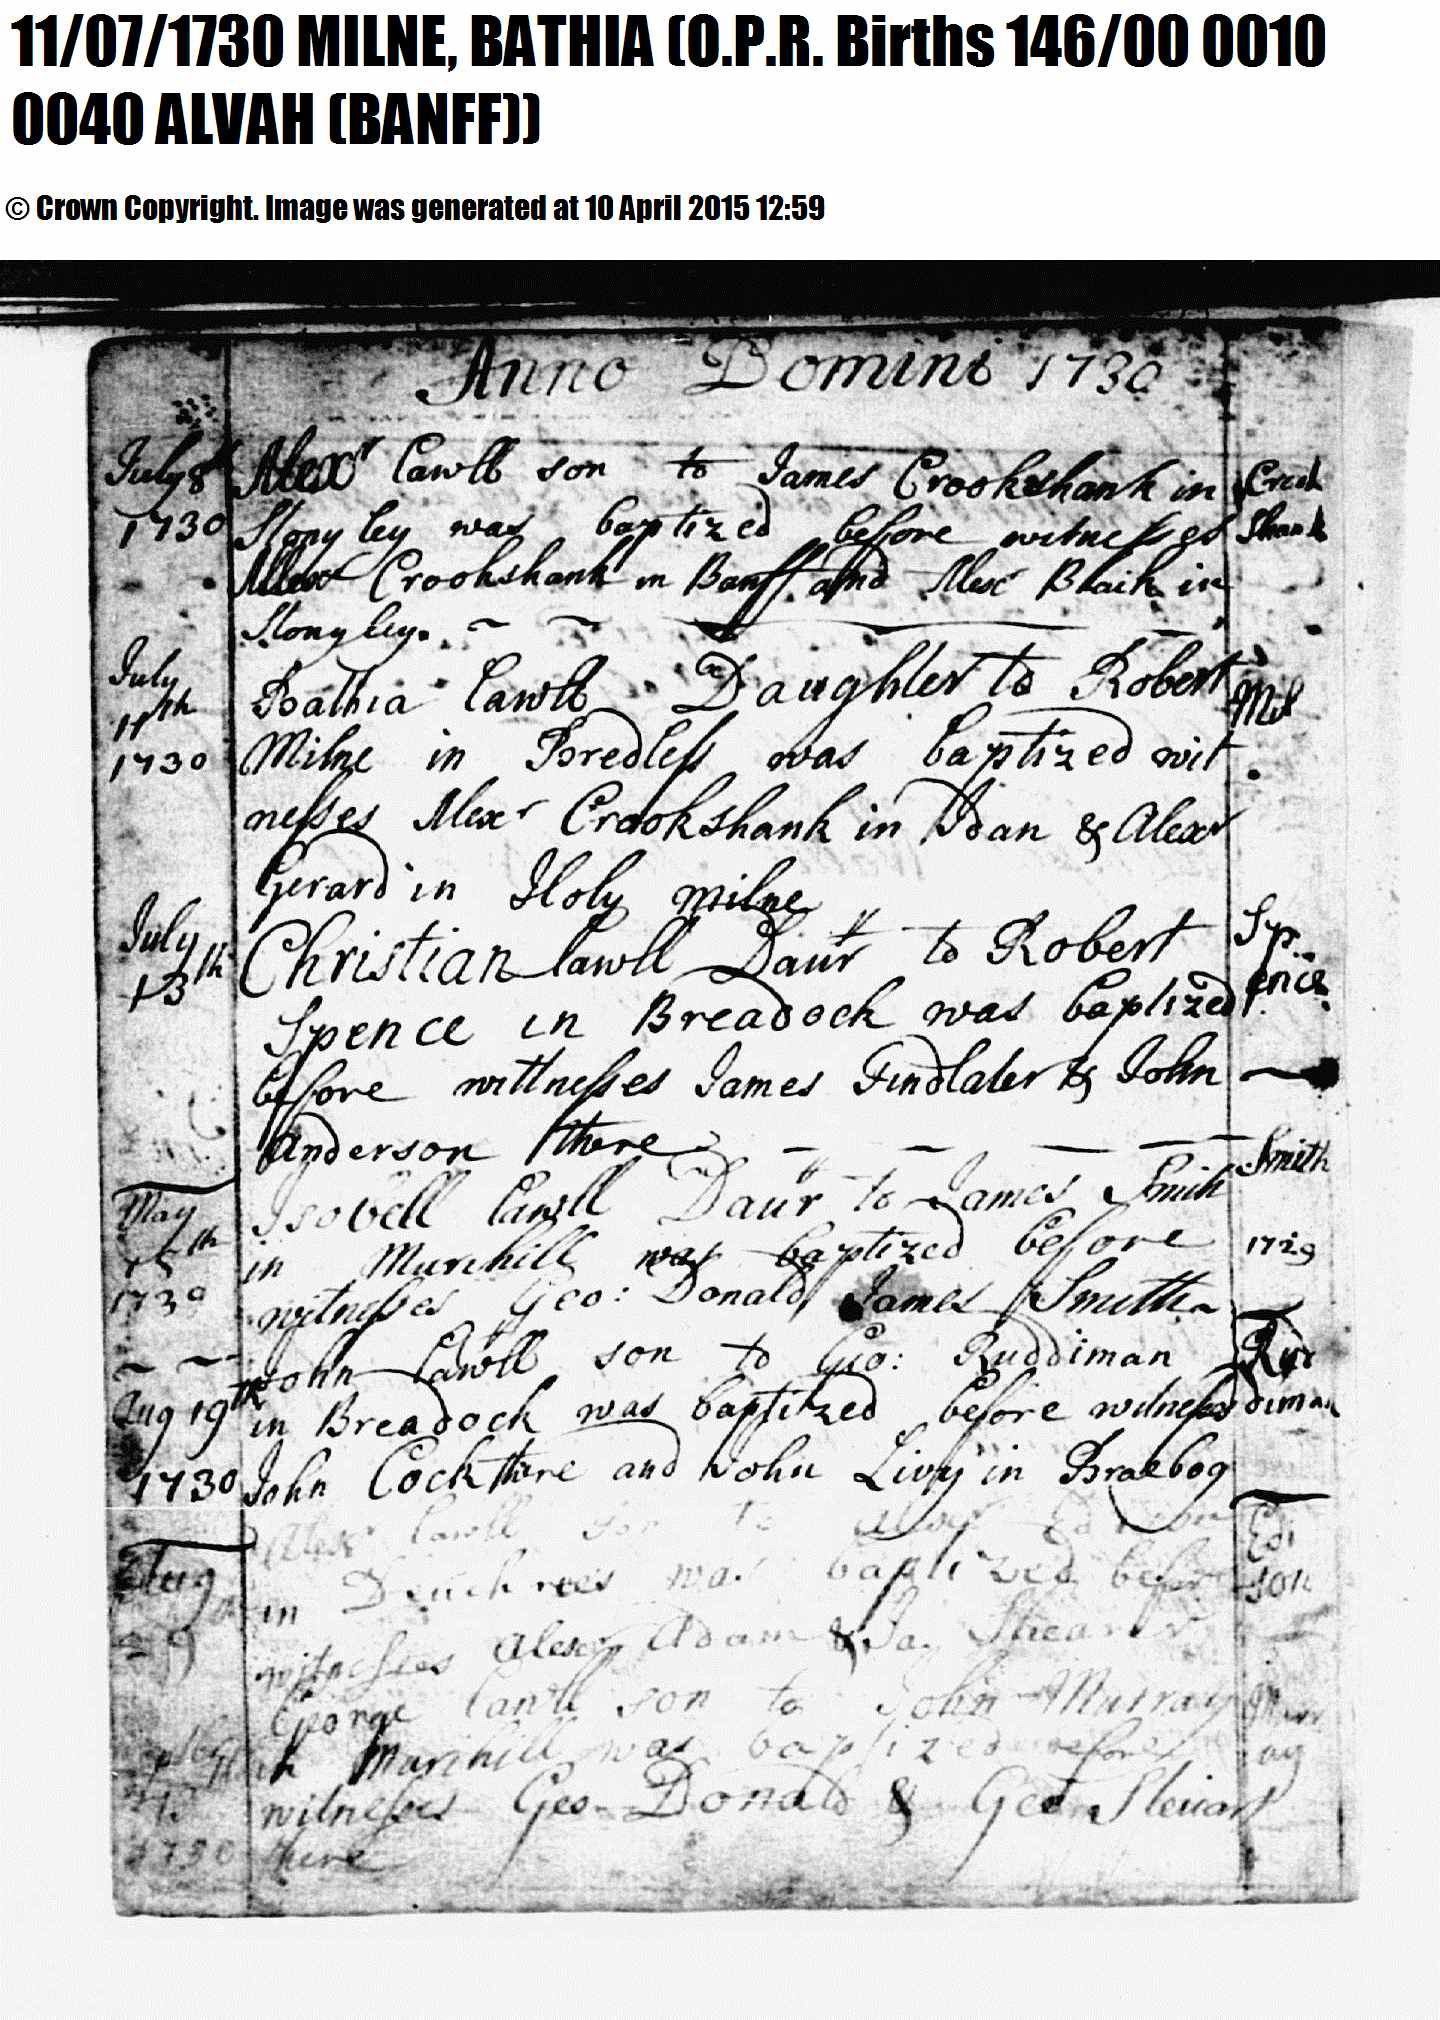 11/07/1730 MILNE, BATHIA (O.P.R. Births 146/00 0010
0040 ALVAH (BANFF))
© Crown Copyright. Image was generated at 10 April 2015 12:59
Anno Domini 1730
July 8th Alexr Lawll son to James Crookshank in Crook
1730 Stonyley was baptized before witnesses Shank
Alexr Crookshank in Banff and Alexr Blaik in
Stonyley.
July Bathia Lawll Daughter to Robert Mil
11th
1730 Milne in Bredless was baptized wit
nesses Alexr Crookshank in Idan & Alexr
Gerard in Holy milne
July Christian Lawll Daur to Robert Sp
13th Spence in Breadock was baptized ence
before wittnesses James Findlater & John
Anderson there
May Isobell Lawll Daur to James Smith Smith
15th in Murihill was baptized before 1729
1730 witnesses Geo: Donald James Smith
John Lawll son to Geo: Ruddiman Rud
Aug 19th in Breadock was baptized before witness diman
1730 John Cock there and John Livy in Braebog
Alexr Lawll son to Alexr Edi
Aug in was baptized before son
witnesses Alexr Adam & Ja. Shearer
George Lawll son to John Murray Murr
in Murihill was baptized before ay
witnesses Geo Donald & Geo Steuart
1730 there